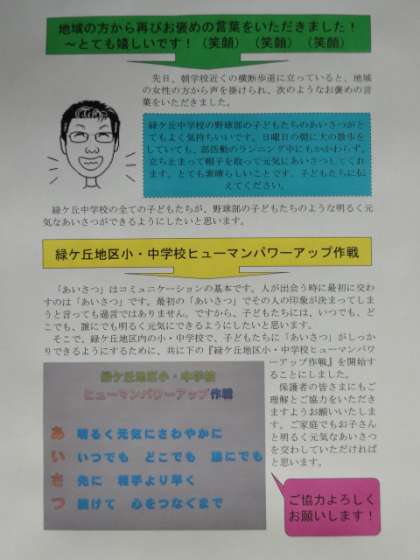 地域の方から再びお褒めの言葉をいただきました！
～とても嬉しいです！（笑顔）（笑顔）（笑顔）
先日、朝学校近くの横断歩道に立っていると、地域
の女性の方から声を掛けられ、次のようなお褒めの言
葉をいただきました。
緑ケ丘中学校の野球部の子どもたちのあいさつがと
てもよく気持ちいいです。日曜日の朝に犬の散歩を
していても、部活動のランニング中にもかかわらず、
立ち止まって帽子を取って元気にあいさつしてくれ
ます。とても素晴らしいことです。子どもたちに伝
えてください。
緑ケ丘中学校の全ての子どもたちが、野球部の子どもたちのような明るく元
気なあいさつができるようにしたいと思います。
緑ケ丘地区小・中学校ヒューマンパワーアップ作戦
「あいさつ」はコミュニケーションの基本です。人が出会う時に最初に交わ
すのは「あいさつ」です。最初の「あいさつ」でその人の印象が決まってしま
うと言っても過言ではありません。ですから、子どもたちには、いつでも、ど
こでも、誰にでも明るく元気にできるようにしたいと思います。
そこで、緑ケ丘地区内の小・中学校で、子どもたちに「あいさつ」がしっか
りできるようにするために、共に下の『緑ケ丘地区小・中学校ヒューマンパワ
ーアップ作戦』を開始す
ることにしました。
保護者の皆さまにもご
理解とご協力をいただき
ますようお願いいたしま
す。ご家庭でもお子さん
と明るく元気なあいさつ
を交わしていただければ
と思います。
緑ケ丘地区小・中学校
ヒューマンパワーアップ作戦
あ 明るく元気にさわやかに
い いつでも どこでも 誰にでも
さ 先に 相手より早く
つ 続けて 心をつなぐまで
ご協力よろしく
お願いします！